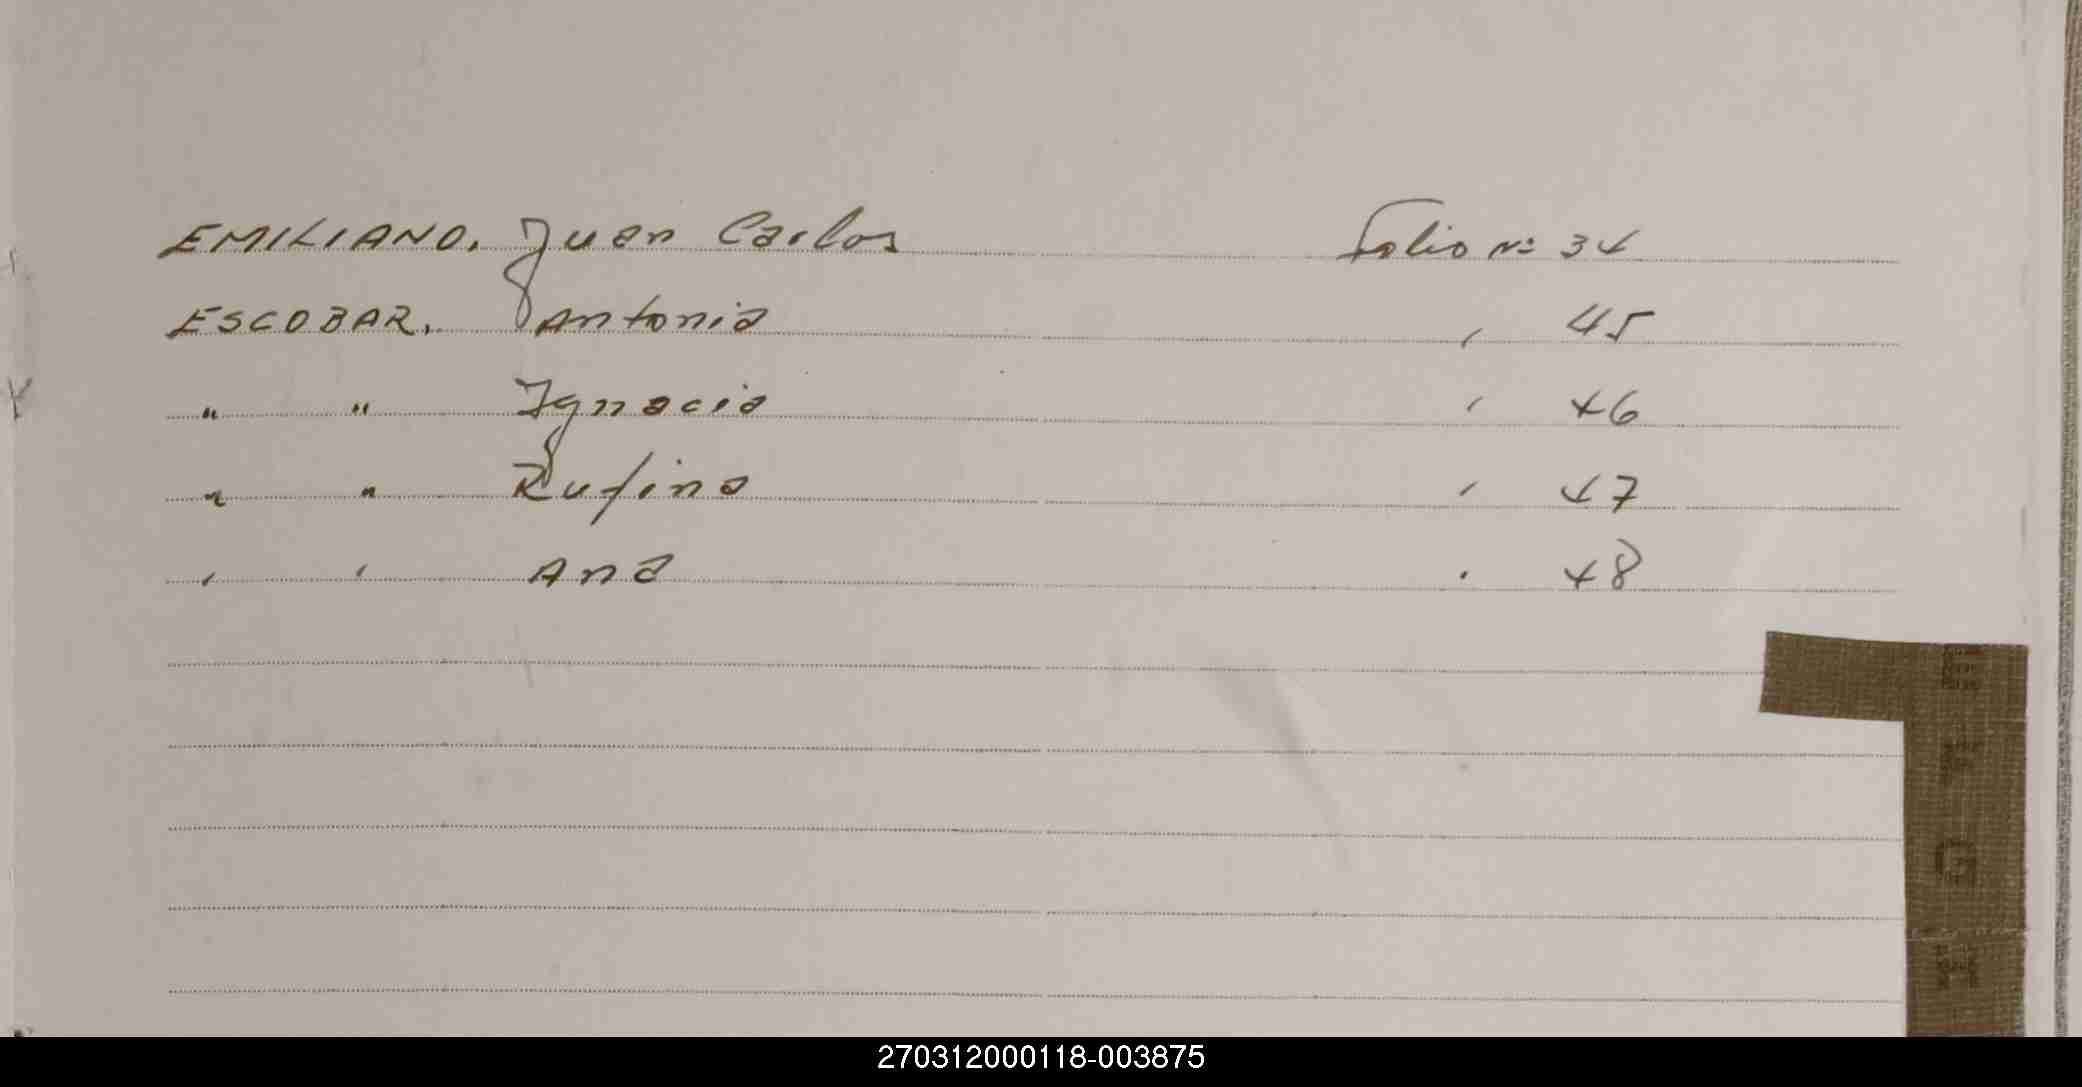 EMILIANO. Juan Carlos Folio Nº 34
ESCOBAR. Antonia , 45
" " Ignacia ' 46
" " Rufina ' 47
' ' Ana . 48
E
F
G
H
270312000118-003875